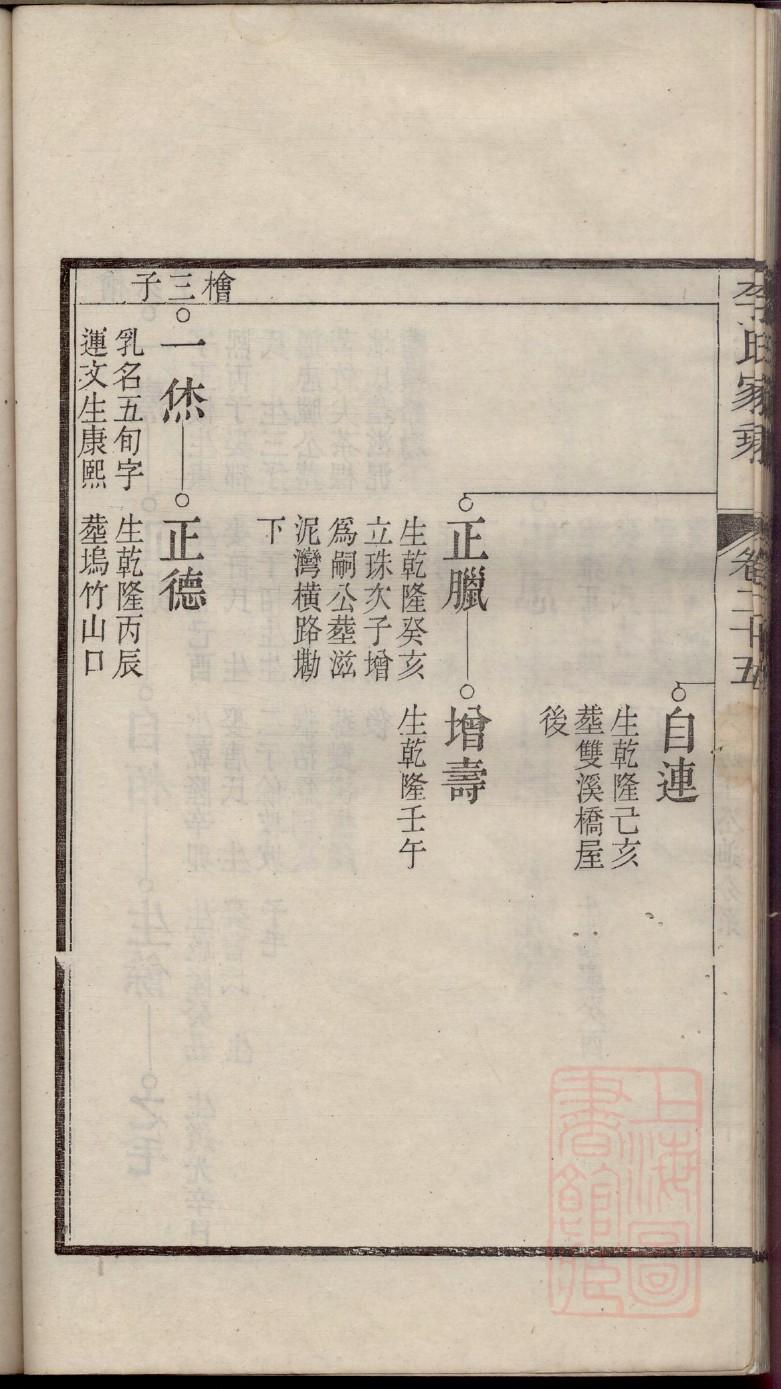 李氏家乘
卷二十五
自連
生乾隆己亥
塟雙溪橋屋
後
正臘
生乾隆癸亥
立珠次子增
為嗣公塟滋
泥灣橫路墈
下
增壽
生乾隆壬午
檜三子
一烋
乳名五旬字
蓮文生康熙
正德
生乾隆丙辰
塟塢竹山口
上海圖
書館藏